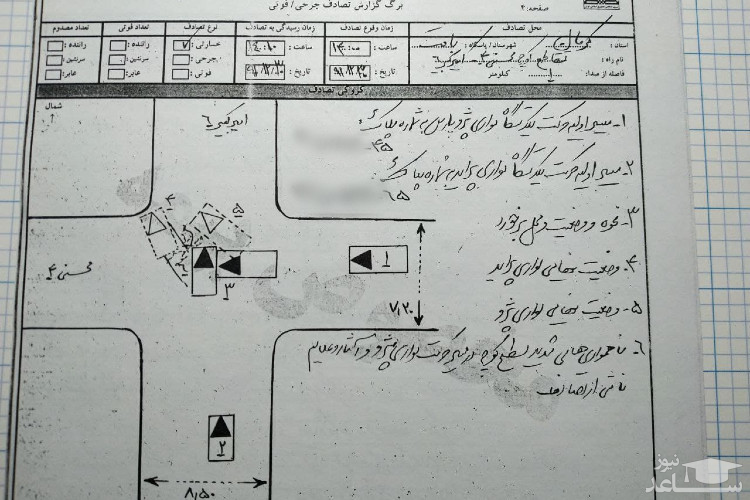 صفحه: ۲
برگ گزارش تصادف جرحی / فوتی
محل تصادف
زمان وقوع تصادف
زمان رسیدگی به تصادف
نوع تصادف
تعداد فوتی
تعداد مصدوم
استان :
شهرستان / پاسگاه :
ساعت : ۱۳:۰۰
ساعت :
خسارتی :
راننده :
راننده :
نام راه :
تاریخ :
تاریخ :
جرحی :
سرنشین :
سرنشین :
فاصله از مبدا : کیلومتر
فوتی :
عابر :
عابر :
کروکی تصادف
شمال
امیرکبیر ۶
محسنی ۴
۱- مسیر اولیه حرکت یکدستگاه سواری پژو پارس به شماره پلاک
۴۵
۲- مسیر اولیه حرکت یکدستگاه سواری پراید به شماره پلاک
۶۵
۳- نحوه و وضعیت و محل برخورد
۴- وضعیت نهایی سواری پراید
۵- وضعیت نهایی سواری پژو
۶- ناهمواری هایی شدید سطح کوچه در مسیر حرکت سواری پژو و آثار و علایم
ناشی از تصادف
۴
۵
۱
۳
۲
۷٫۲۰
۸٫۵۰
نیوز
ساعد